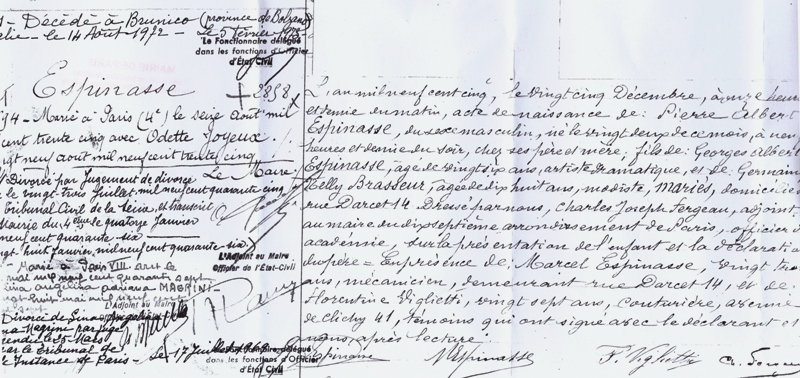 Décédé à Brunico (province de Bolzano
Italie - le 14 Août 1972 - Le 5 février
Le Fonctionnaire délégué
dans les fonctions d'Officier
d'État Civil
Espinasse + 2858
Marié à Paris (4e) le seize août mil
cent trente cinq avec Odette Joyeux.
vingt neuf août mil neuf cent trente cinq
Le Maire,
Divorcé par jugement de divorce
le vingt trois juillet mil neuf cent quarante cinq
Tribunal Civil de la Seine, et transcrit
mairie du 4ème le quatorze Janvier
neuf cent quarante six
vingt huit Janvier, mil neuf cent quarante six
L'Adjoint au Maire
Officier de l'État-Civil
Marié à Paris VIII
mai mil neuf cent quarante sept
Lina Magrini
vingt huit mai mil neuf cent
L'Adjoint au Maire
Divorcé de Lina
Magrini par jug
rendu le 25 Mars
par le Tribunal de
Instance de Paris - Le 17 Juillet
délégué
dans les fonctions d'Officier
d'État Civil
L'an mil neuf cent cinq, le vingt cinq Décembre, à onze heures
et demie du matin, acte de naissance de: Pierre Albert
Espinasse, du sexe masculin, né le vingt deux de ce mois, à neuf
heures et demie du soir, chez ses père et mère; fils de: Georges Albert
Espinasse, âgé de vingt six ans, artiste dramatique, et de Germaine
Nelly Brasseur, âgée de dix huit ans, modiste, mariés, domiciliés
rue Darcet 14 - Dressé par nous, Charles Joseph Fergeau, adjoint
au maire du dix septième arrondissement de Paris, officier d'
académie, sur la présentation de l'enfant et la déclaration
du père = En présence de: Marcel Espinasse, vingt trois
ans, mécanicien, demeurant rue Darcet 14, et de
Florentine Viglietti, vingt sept ans, couturière, avenue
de Clichy 41, témoins qui ont signé avec le déclarant et
nous, après lecture.
Espinasse M Espinasse F. Viglietti